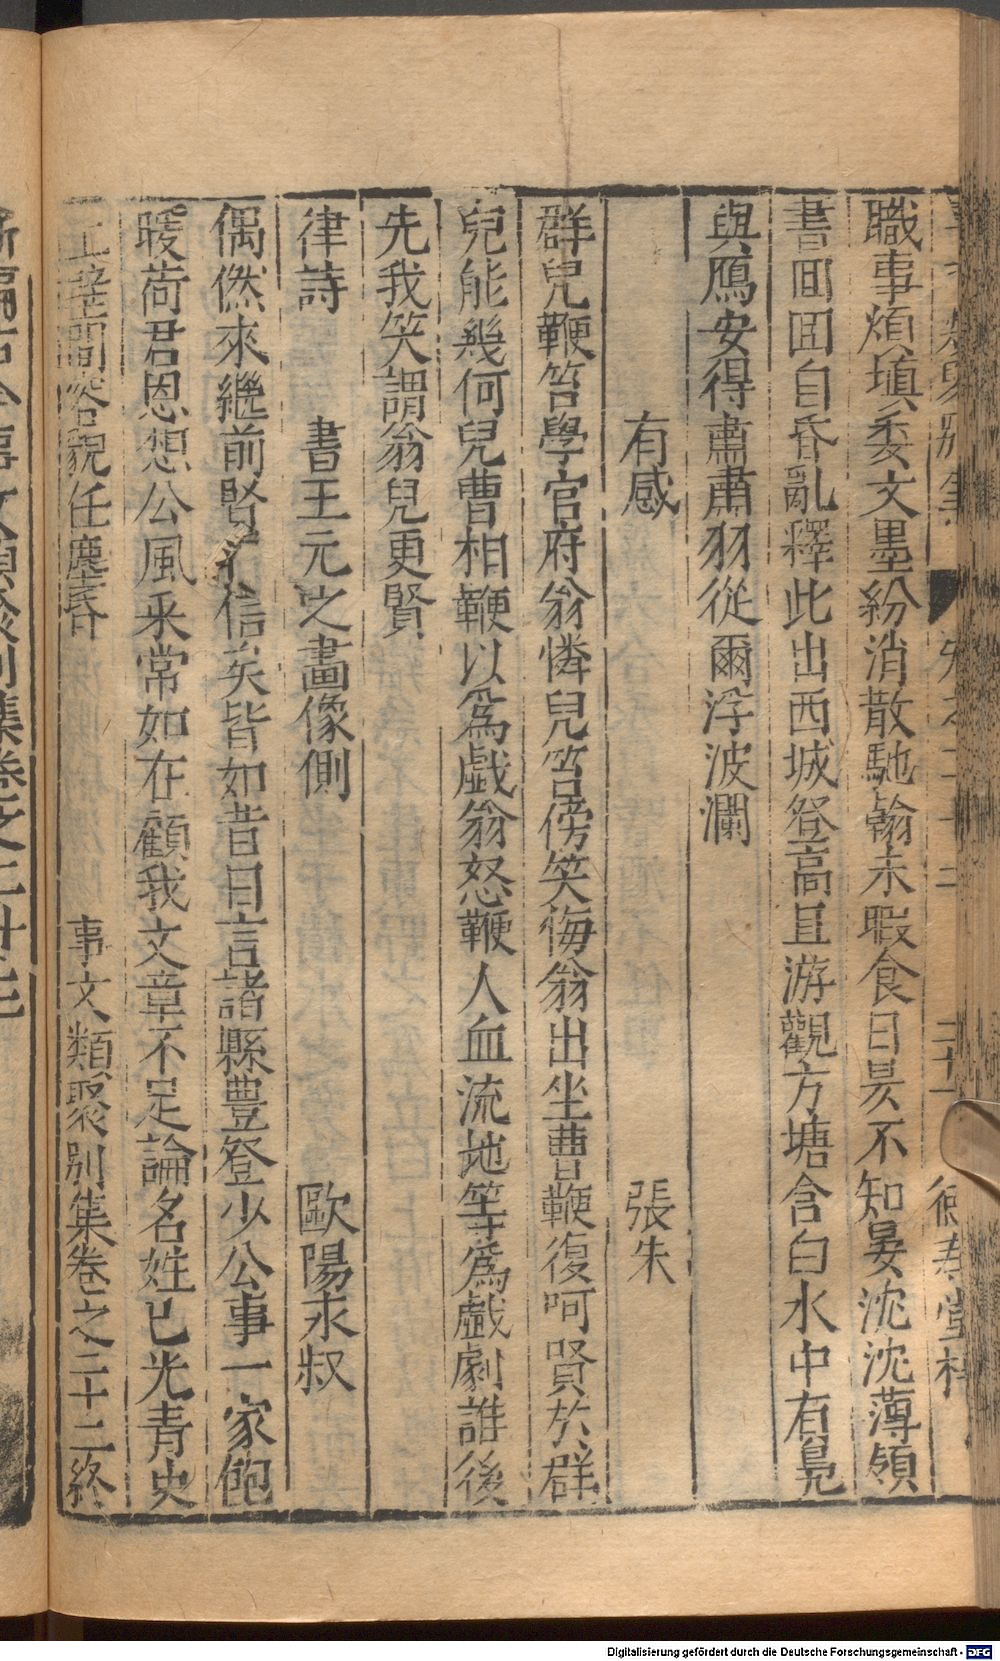 職事煩塡委文墨紛消散馳翰未暇食日昃不知晏沈沈薄領
書囬囬自昏亂釋此出西城登高且游觀方塘含白水中有鳬
與鴈安得肅肅羽從爾浮波瀾
有感 張朱
群兒鞭笞學官府翁憐兒笞傍笑侮翁出坐曹鞭復呵賢於群
兒能幾何兒曹相鞭以爲戯翁怒鞭人血流地等爲戯劇誰後
先我笑謂翁兒更賢
律詩 書王元之畫像側 歐陽永叔
偶然來繼前賢信矣皆如昔日言諸縣豊登少公事一家飽
暖荷君恩想公風采常如在顧我文章不足論名姓已光青史
上壁間容貌任塵昏 事文類聚别集卷之二十二終
德壽堂梓
Digitalisierung gefördert durch die Deutsche Forschungsgemeinschaft - DFG